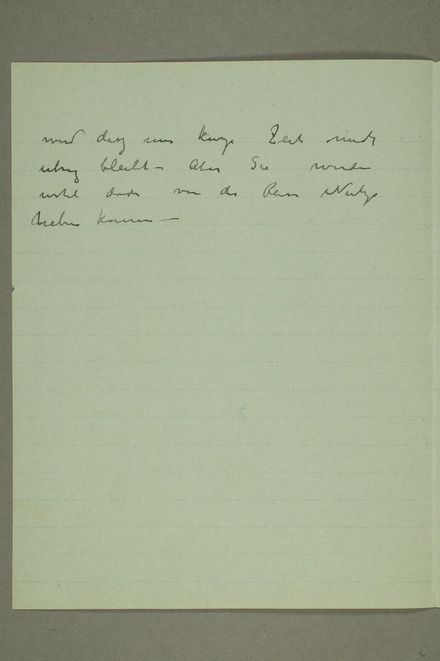 wird dazu uns kurze Zeit nicht
übrig bleibt – Aber Sie werden
wohl doch von der Reise Nutzen
haben können –